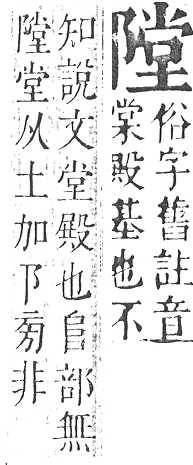 隚
俗字舊註音
棠殿基也不
知說文堂殿也𨸏部無
隚堂从土加阝旁非